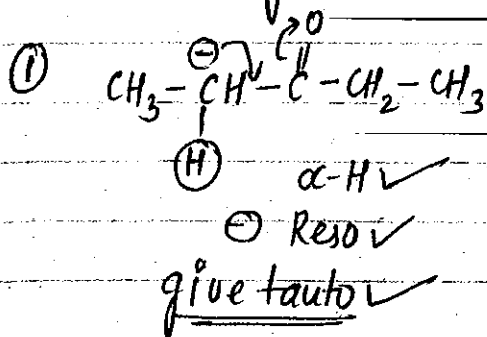 ① CH₃-CH-C-CH₂-CH₃
⊖ O
H
α-H ✓
⊖ Reso ✓
give tauto ✓